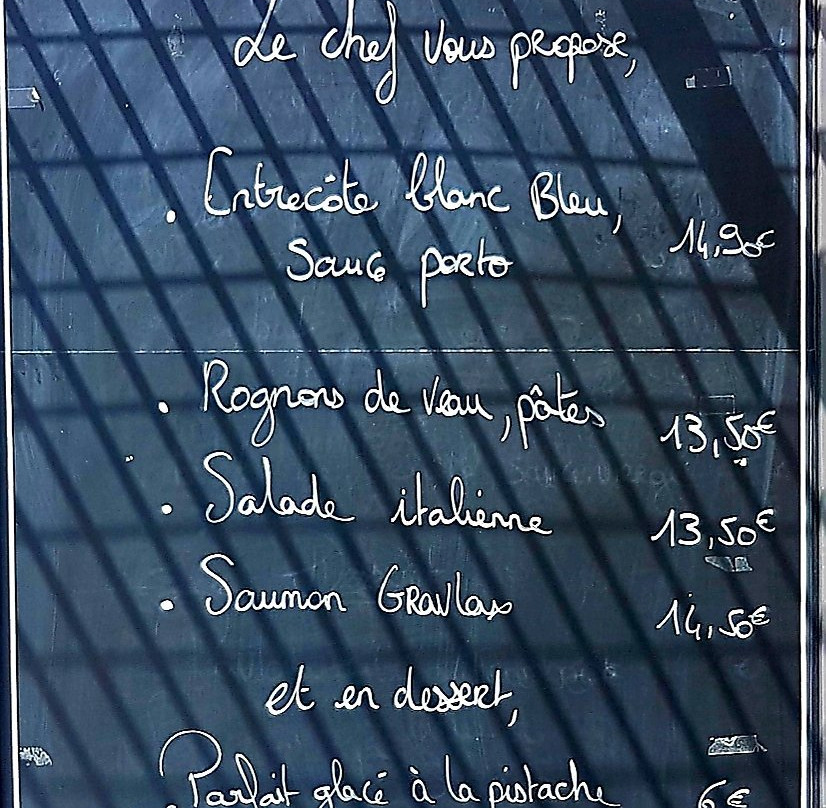 Le chef vous propose,
• Entrecôte blanc Bleu,
Sauce porto 14,90€
• Rognons de veau, pâtes 13,50€
• Salade italienne 13,50€
• Saumon Gravlax 14,50€
et en dessert,
• Parfait glacé à la pistache 6€